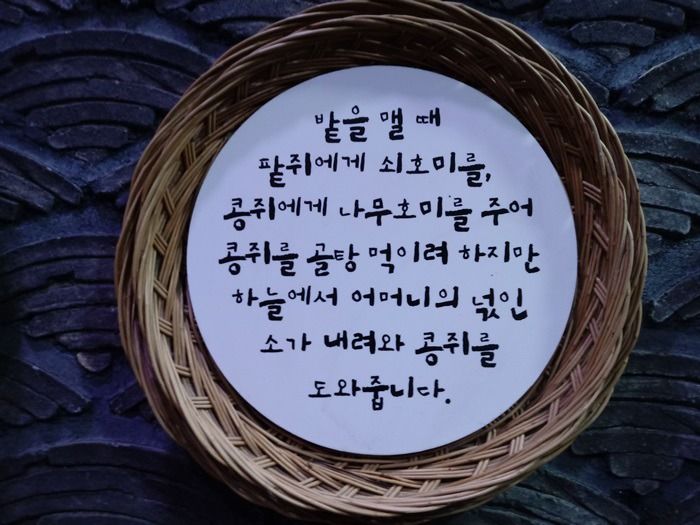 밭을 맬 때
팥쥐에게 쇠호미를,
콩쥐에게 나무호미를 주어
콩쥐를 골탕 먹이려 하지만
하늘에서 어머니의 넋인
소가 내려와 콩쥐를
도와줍니다.